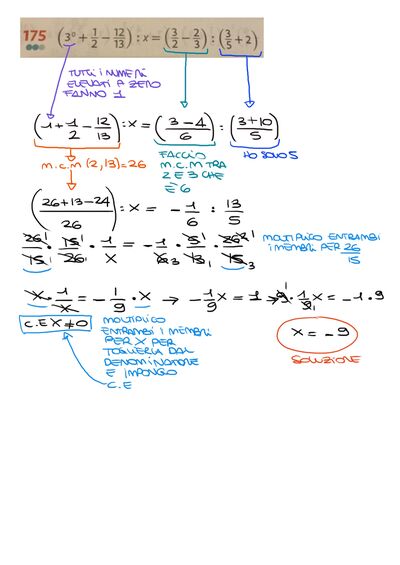 175 (3⁰ + 1/2 − 12/13) : x = (3/2 − 2/3) : (3/5 + 2)
TUTTI I NUMERI
ELEVATI A ZERO
FANNO 1
(1 + 1/2 − 12/13) : x = (3−4/6) : (3+10/5)
m.c.m (2,13) = 26
FACCIO
M.C.M TRA
2 E 3 CHE
È 6
HO SOLO 5
(26+13−24/26) : x = − 1/6 : 13/5
26/15 · 15/26 · 1/x = −1/6 3 · 5/13 · 26/15 3
MOLTIPLICO ENTRAMBI
I MEMBRI PER 26/15
x · 1/x = − 1/9 · x → − 1/9 x = 1 → 9 · 1/9 x = −1 · 9
C.E X ≠ 0
MOLTIPLICO
ENTRAMBI I MEMBRI
PER X PER
TOGLIERLA DAL
DENOMINATORE
E IMPONGO
C.E
x = − 9
SOLUZIONE